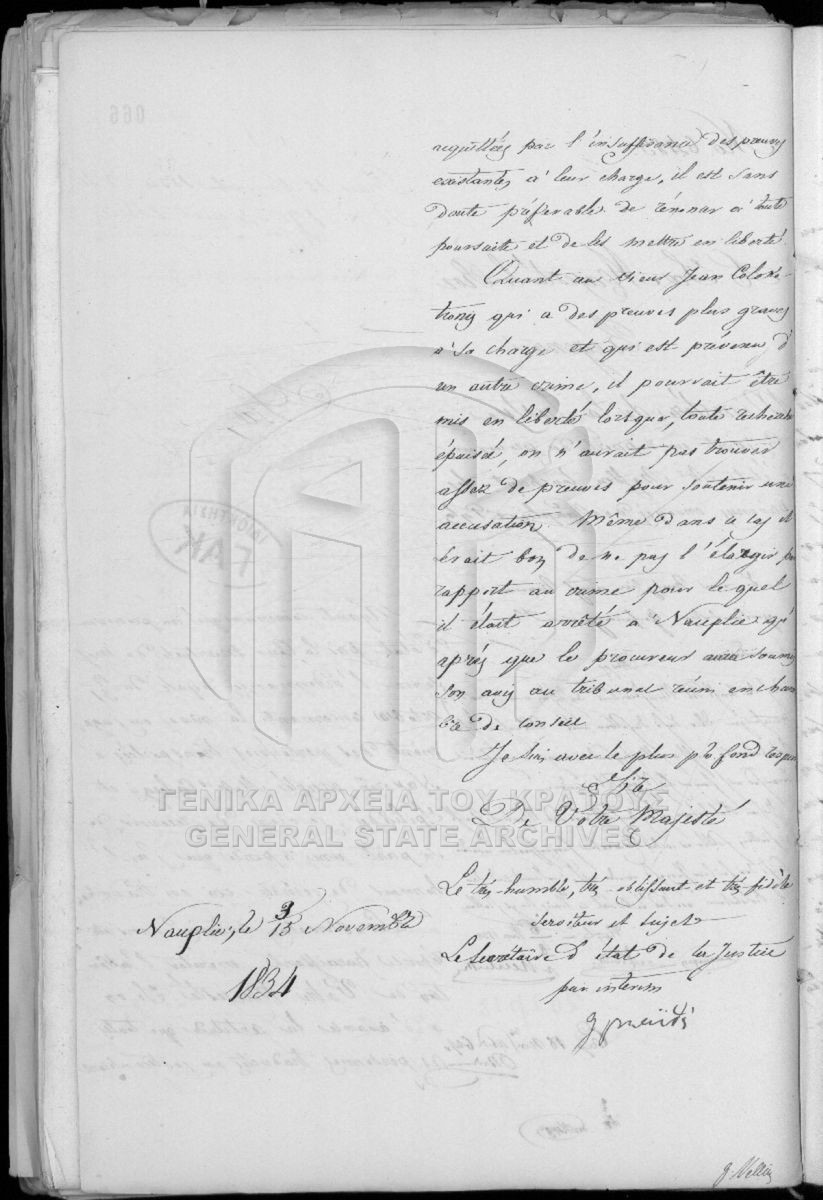 acquittées par l'insuffisance des preuves
existantes à leur charge, il est sans
doute préferable de rénonær à toute
poursuite et de les mettre en liberté.
Quant au sieur Jean Coloko-
tronis qui a des preuves plus graves
à sa charge et qui est prévenu d'
un autre crime, il pourrait être
mis en liberté lorsque, toute recherche
épuisée, on n'aurait pas trouver
assez de preuves pour soutenir une
accusation. Même dans ce cas il
serait bon de ne pas l'élargir par
rapport au crime pour le quel
il était arrêté à Nauplie qu'
après que le procureur aura soumis
son avis au tribunal réuni en cham
bre de conseil
Je suis avec le plus profond respect
Sire
De Votre Majesté
Le très humble, très obéissant et très fidèle
serviteur et sujet
Nauplie, le 3/15 Novembre
1834
Le Secrétaire d'état de la Justice
par interim
ΓΕΝΙΚΑ ΑΡΧΕΙΑ ΤΟΥ ΚΡΑΤΟΥΣ
GENERAL STATE ARCHIVES